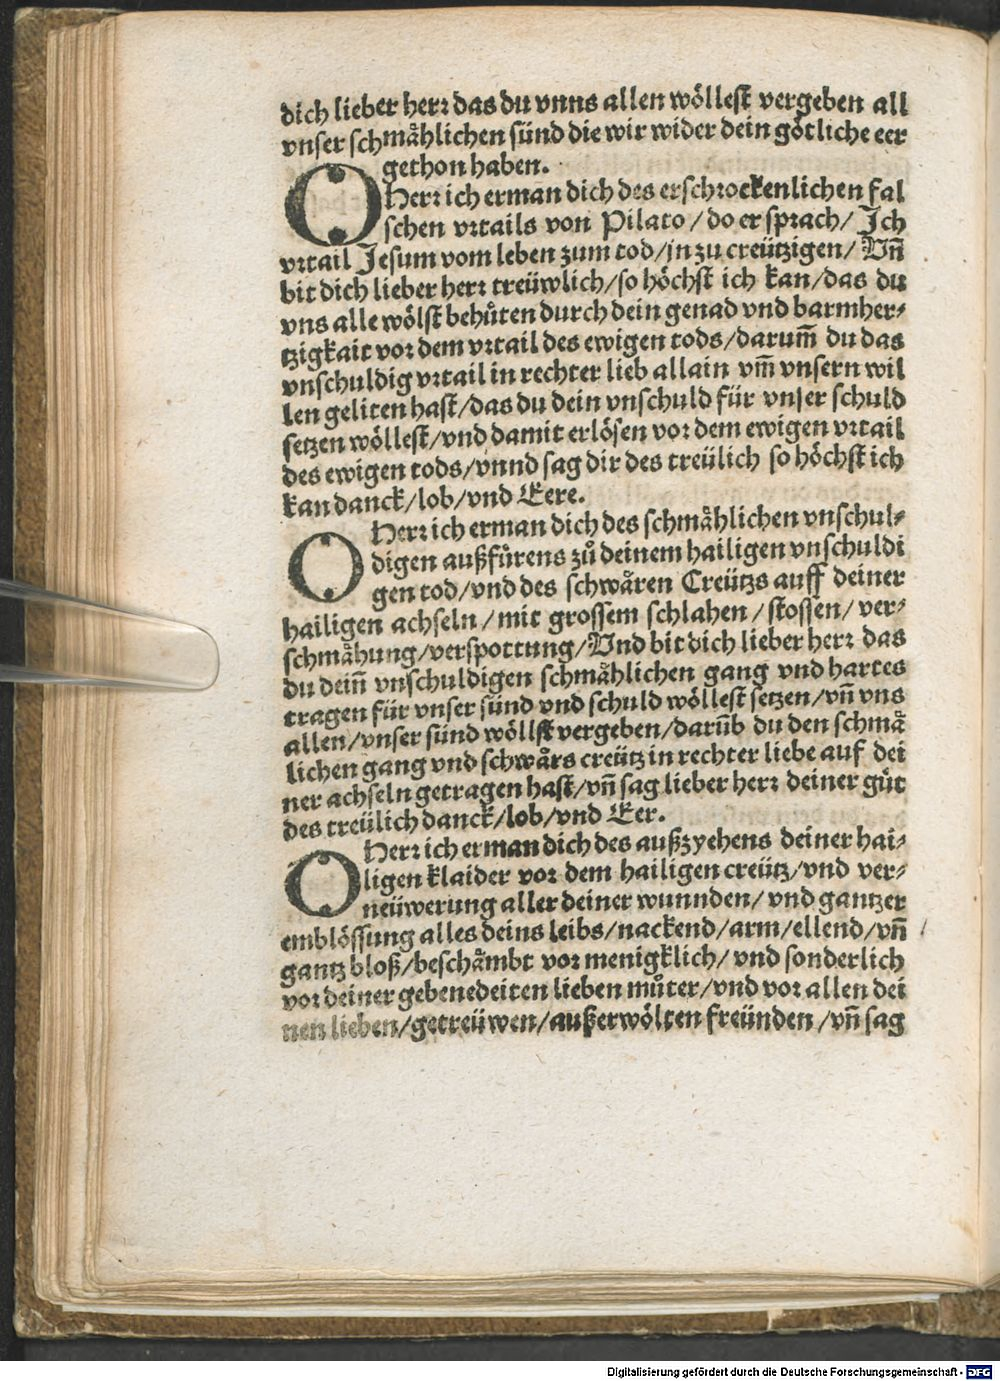 dich lieber herr das du vnns allen wöllest vergeben all
vnser schmählichen sünd die wir wider dein götliche eer
gethon haben.
O Herr ich erman dich des erschrockenlichen fal
schen vrtails von Pilato / do er sprach / Ich
vrtail Jesum vom leben zum tod / in zu creützigen / Vñ
bit dich lieber herr treüwlich / so höchst ich kan / das du
vns alle wölst behůten durch dein genad vnd barmher⸗
tzigkait vor dem vrtail des ewigen tods / darum̃ du das
vnschuldig vrtail in rechter lieb allain vm̃ vnsern wil
len geliten hast / das du dein vnschuld für vnser schuld
setzen wöllest / vnd damit erlösen vor dem ewigen vrtail
des ewigen tods / vnnd sag dir des treülich so höchst ich
kan danck / lob / vnd Eere.
O Herr ich erman dich des schmåhlichen vnschul⸗
digen außfůrens zů deinem hailigen vnschuldi
gen tod / vnd des schwåren Creützs auff deiner
hailigen achseln / mit grossem schlahen / stossen / ver⸗
schmåhung / verspottung / Vnd bit dich lieber herr das
du dein̄ vnschuldigen schmåhlichen gang vnd hartes
tragen für vnser sünd vnd schuld wöllest setzen / vñ vns
allen / vnser sünd wöllst vergeben / darũb du den schmå
lichen gang vnd schwårs creütz in rechter liebe auf dei
ner achseln getragen hast / vñ sag lieber herr deiner gůt
des treülich danck / lob / vnd Eer.
O Herr ich erman dich des außzyehens deiner hai⸗
ligen klaider vor dem hailigen creütz / vnd ver⸗
neüwerung aller deiner wunnden / vnd gantzer
emblössung alles deins leibs / nackend / arm / ellend / vñ
gantz bloß / beschåmbt vor menigklich / vnd sonderlich
vor deiner gebenedeiten lieben můter / vnd vor allen dei
nen lieben / getreüwen / außerwölten freünden / vñ sag
Digitalisierung gefördert durch die Deutsche Forschungsgemeinschaft - DFG